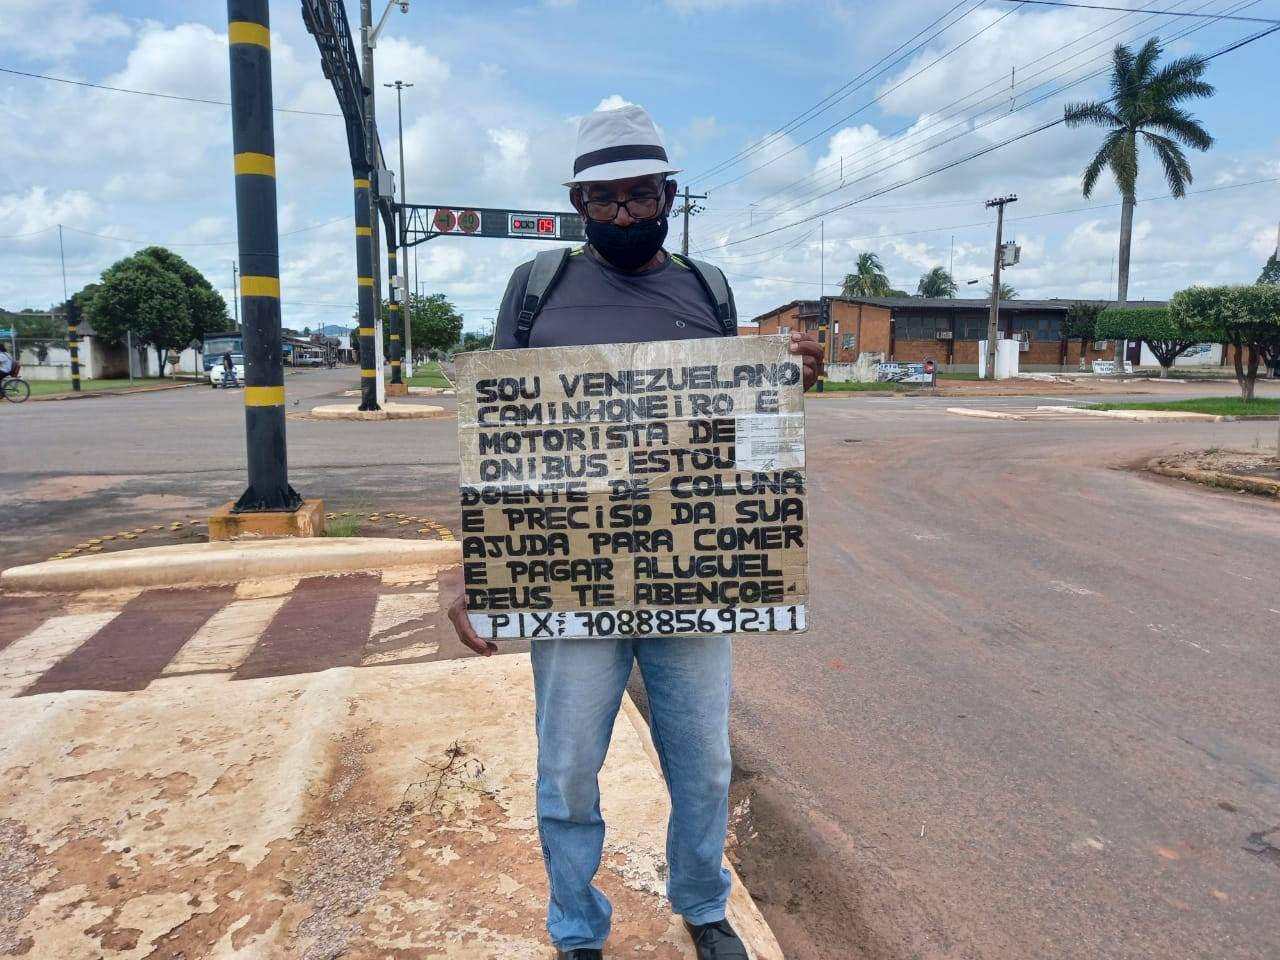 40
09
SOU VENEZUELANO
CAMINHONEIRO E
MOTORISTA DE
ONIBUS ESTOU
DOENTE DE COLUNA
E PRECISO DA SUA
AJUDA PARA COMER
E PAGAR ALUGUEL
DEUS TE ABENÇOE.
PIX: CPF 708885692-11